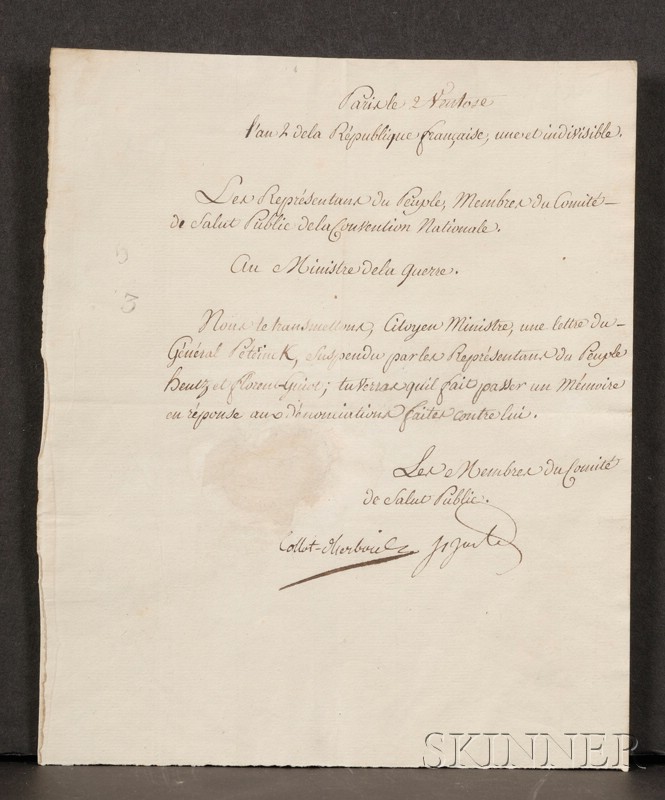 Paris le 2 Ventose
l'an 2 de la République française, une et indivisible.
Les Représentans du Peuple, Membres du Comité
de Salut Public de la Convention Nationale.
Au Ministre de la Guerre.
Nous te transmettons, Citoyen Ministre, une lettre du
Général Pétrinck, suspendu par les Représentans du Peuple
hentz et florent Guiot; tu verras qu'il fait passer un Mémoire
en réponse aux dénonciations faites contre lui.
Les Membres du Comité
de Salut Public.
Collot-d'herbois St Just
SKINNER